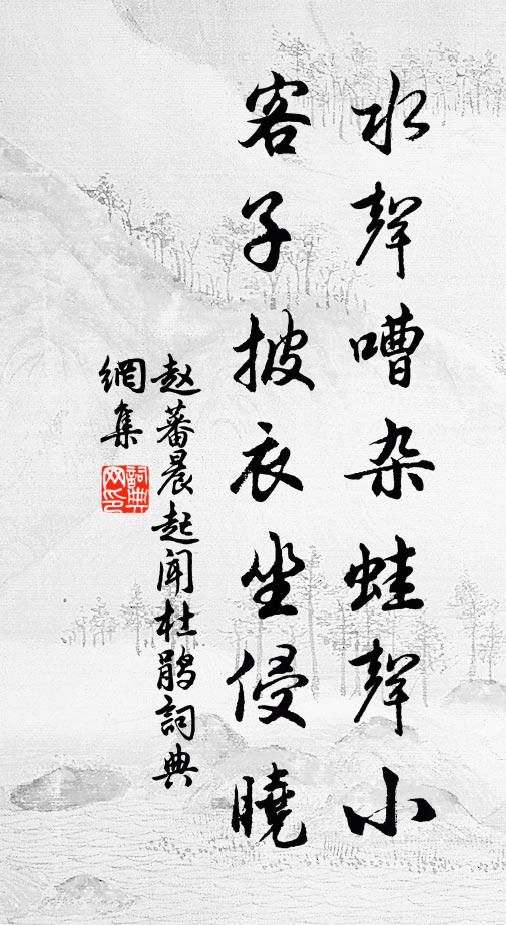 水聲嘈杂蛙聲小
客子披衣坐侵曉
赵蕃晨起闻杜鹃詞典
網集
詞典
网印